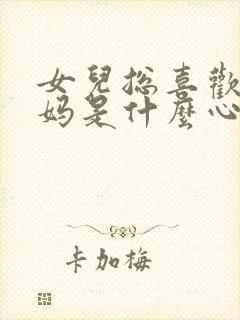 女兒總喜歡
妈是什麼心
卡加梅